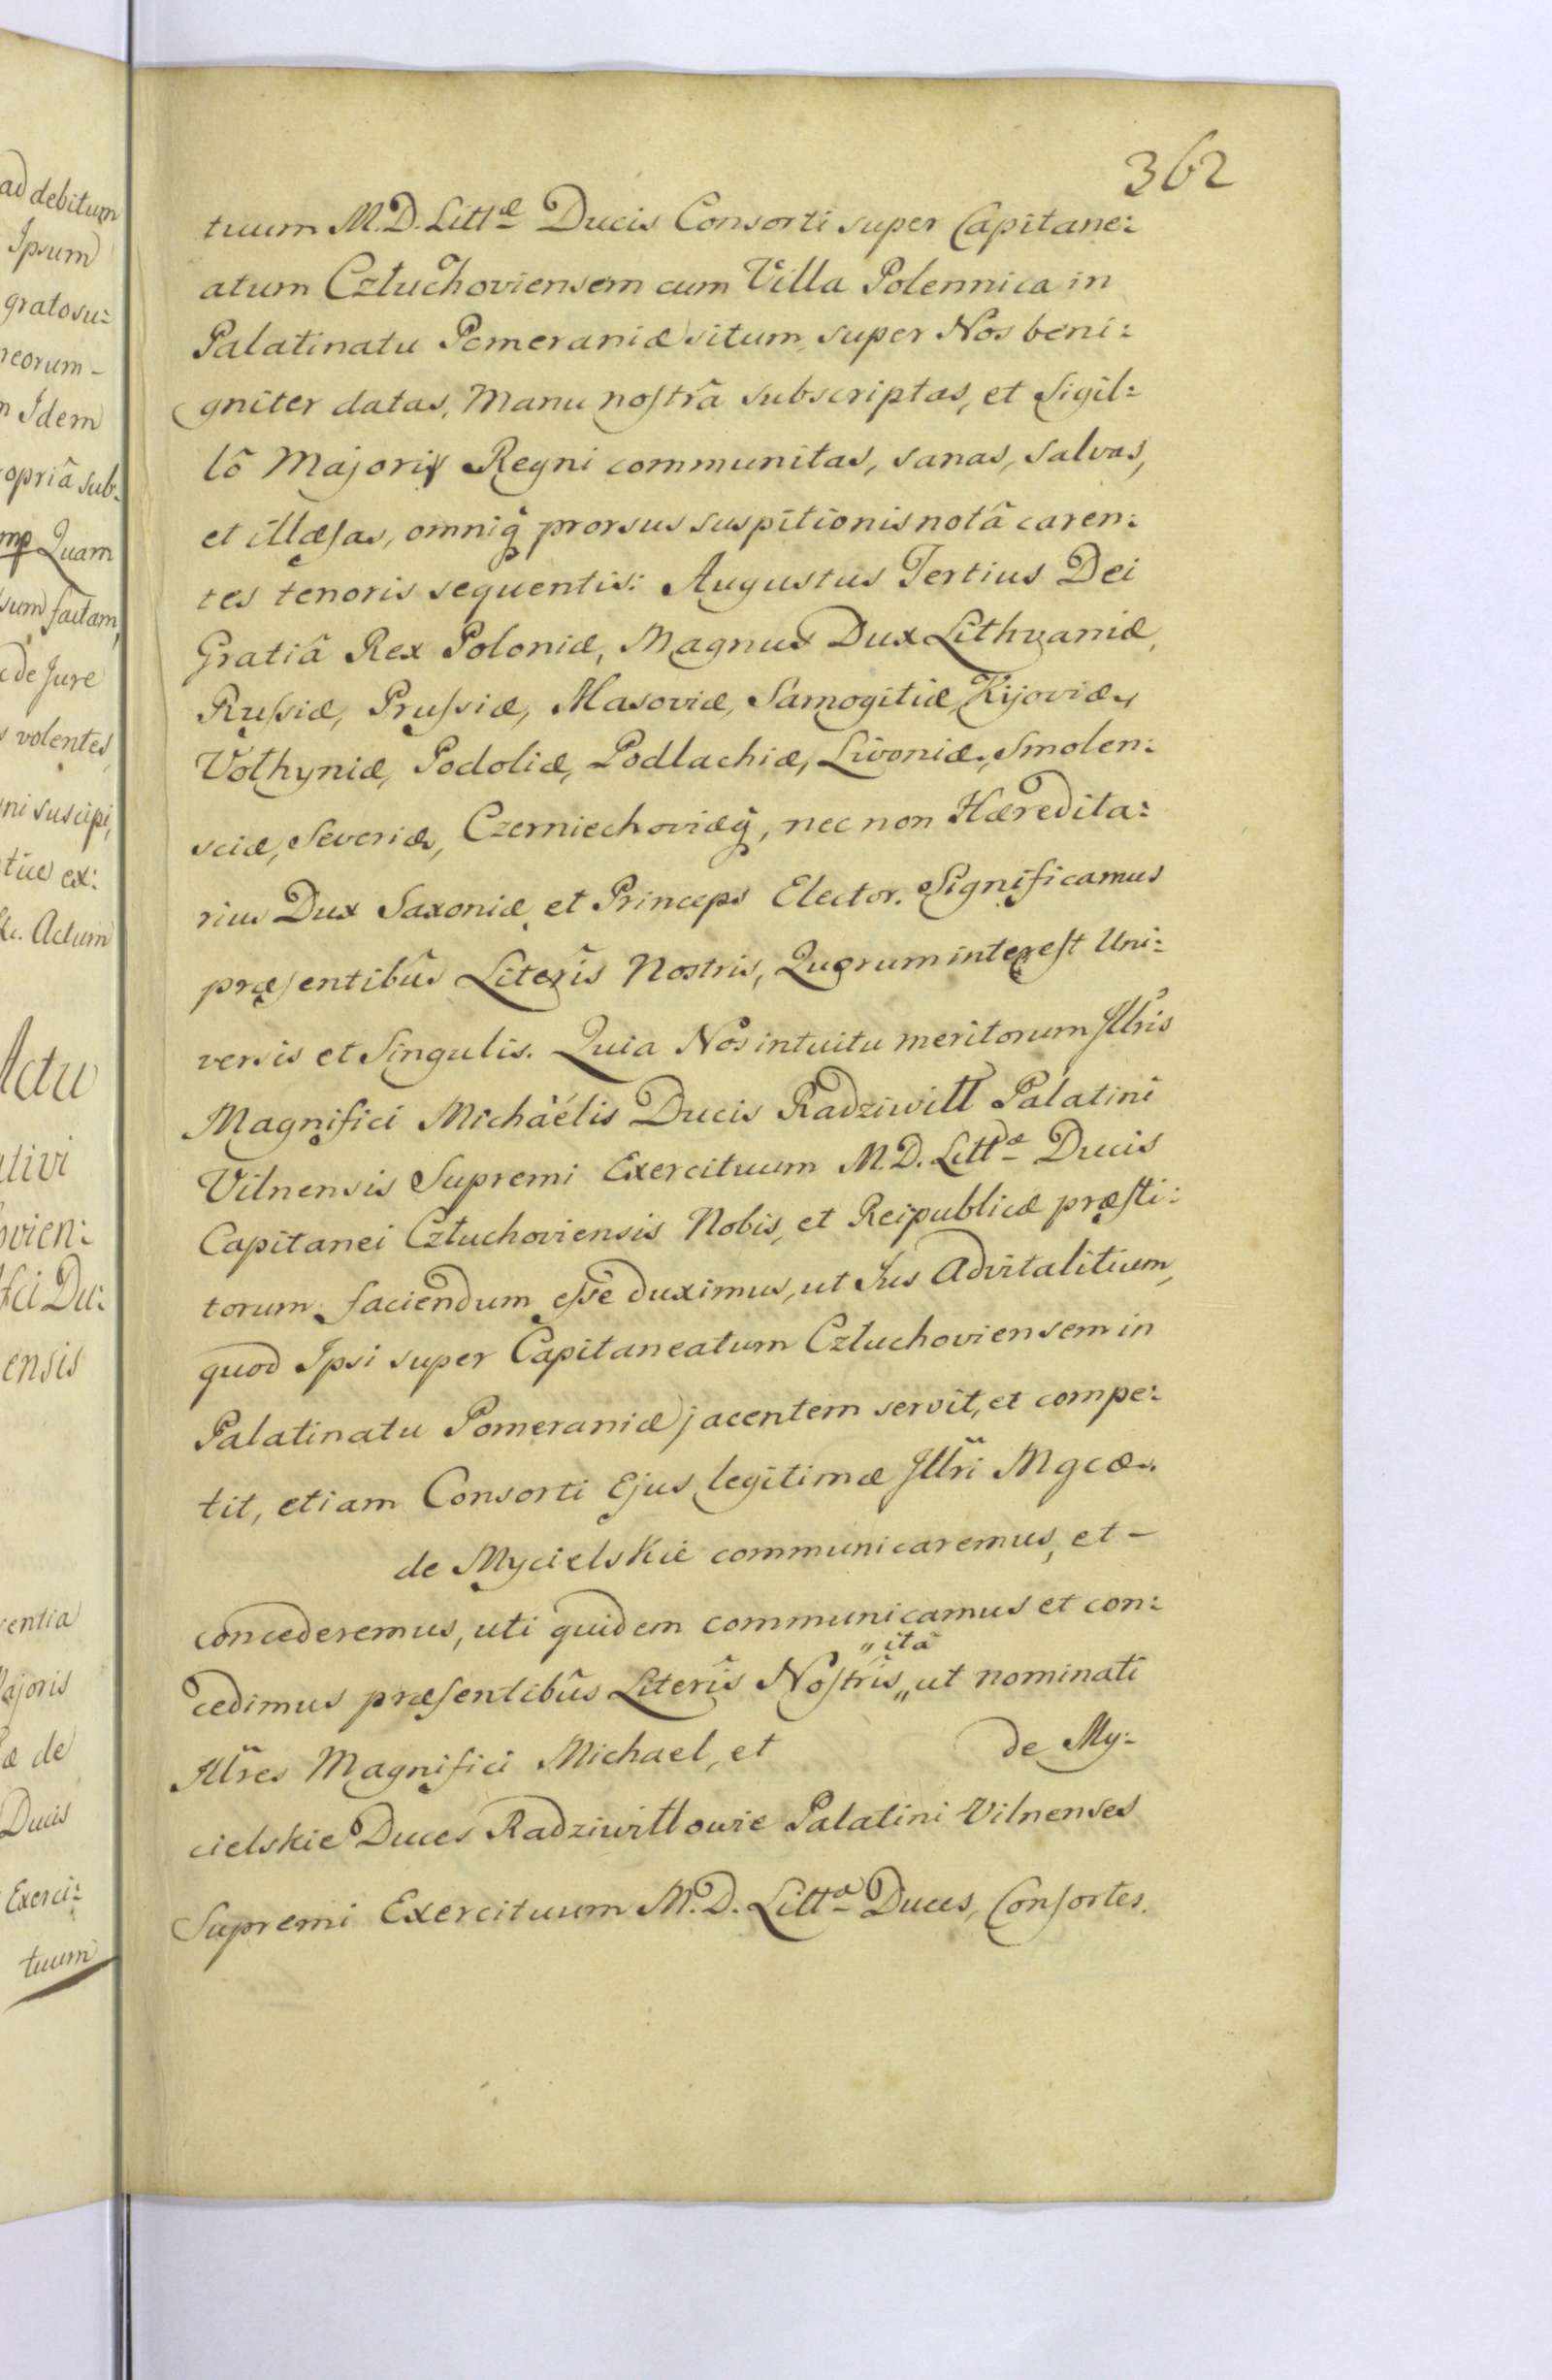 362
tuum M.D. Littæ Ducis Consorti super Capitane:
atum Człuchoviensem cum Villa Polennica in
Palatinatu Pomeraniæ situm super Nos beni:
gniter datas, Manu noſtrâ subscriptas, et Sigil:
lô Majoris Regni communitas, sanas, salvas,
et illæſas, omniq̃ prorsus suspitionis notâ caren:
tes tenoris sequentis: Augustus Tertius Dei
Gratiâ Rex Poloniæ, Magnus Dux Lithvaniæ,
Ruſsiæ, Pruſsiæ, Masoviæ, Samogitiæ, Kijoviæ,
Vołhyniæ, Podoliæ, Podlachiæ, Livoniæ, Smolen:
sciæ, Severiæ, Czerniechoviæq̃, nec non Hæredita:
rius Dux Saxoniæ et Princeps Elector. Significamus
præſentibûs Literîs Nostris, Quorum intereſt Uni:
versis et Singulis. Quia Nos intuitu meritorum Jllris
Magnifici Michäélis Ducis Radziwiłł Palatini
Vilnensis Supremi Exercituum M.D. Littæ Ducis
Capitanei Człuchoviensis Nobis, et Reipublicæ præſti:
torum faciendum eſse duximus, ut Jus Advitalitium,
quod Ipsi super Capitaneatum Człuchoviensem in
Palatinatu Pomeraniæ jacentem servit, et compe:
tit, etiam Consorti Ejus legitimæ Jllri Mgcæ
de Mycielskie communicaremus, et -
concederemus, uti quidem communicamus et con:
„ ità
cedimus præſentibûs Literîs Noſtris „ ut nominati
Jllres Magnifici Michael, et de My:
cielskie Duces Radziwiłłowie Palatini Vilnenses
Supremi Exercituum M.D. Littæ Duces, Conſortes.
ad debitum
Ipsum
grato su:
neorum -
Idem
opriâ sub:
mp Quam
sum factam,
de Jure
volentes,
ni suscipi,
tue ex:
Actum
Actu
ativi
ovien:
Du:
ensis
entia
Majoris
æ de
Ducis
Exerci:
tuum